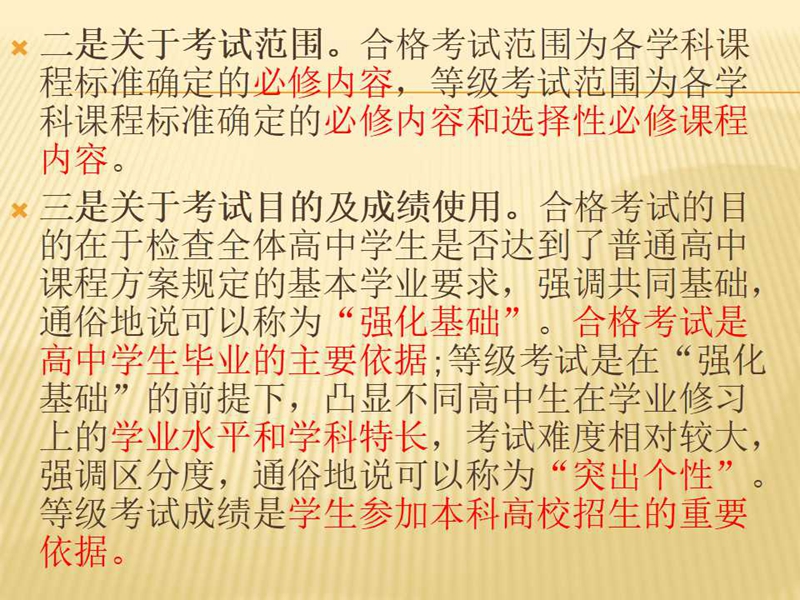 二是关于考试范围。合格考试范围为各学科课
程标准确定的必修内容，等级考试范围为各学
科课程标准确定的必修内容和选择性必修课程
内容。
三是关于考试目的及成绩使用。合格考试的目
的在于检查全体高中学生是否达到了普通高中
课程方案规定的基本学业要求，强调共同基础，
通俗地说可以称为“强化基础”。合格考试是
高中学生毕业的主要依据;等级考试是在“强化
基础”的前提下，凸显不同高中生在学业修习
上的学业水平和学科特长，考试难度相对较大，
强调区分度，通俗地说可以称为“突出个性”。
等级考试成绩是学生参加本科高校招生的重要
依据。